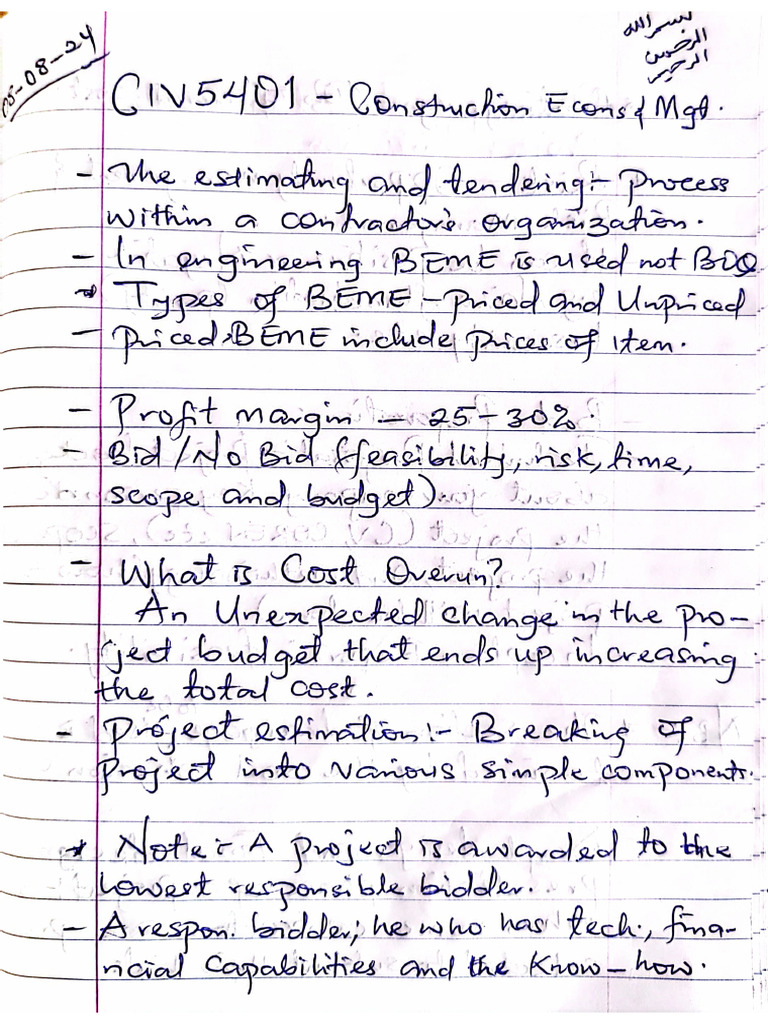 05-08-24
بسم الله
الرحمن
الرحيم
CIV5401 - Construction Econs & Mgt.
- The estimating and tendering:- Process
within a contractor's organization.
- In engineering BEME is used not BOQ
* Types of BEME - Priced and Unpriced
- Priced BEME include prices of item.
- Profit margin - 25-30%.
- Bid/No Bid (feasibility, risk, time,
scope and budget)
- What is Cost Overun?
An Unexpected change in the pro-
ject budget that ends up increasing
the total cost.
- Project estimation:- Breaking of
project into various simple components.
* Note:- A project is awarded to the
lowest responsible bidder.
- A respon. bidder; he who has tech., fina-
ncial capabilities and the know-how.